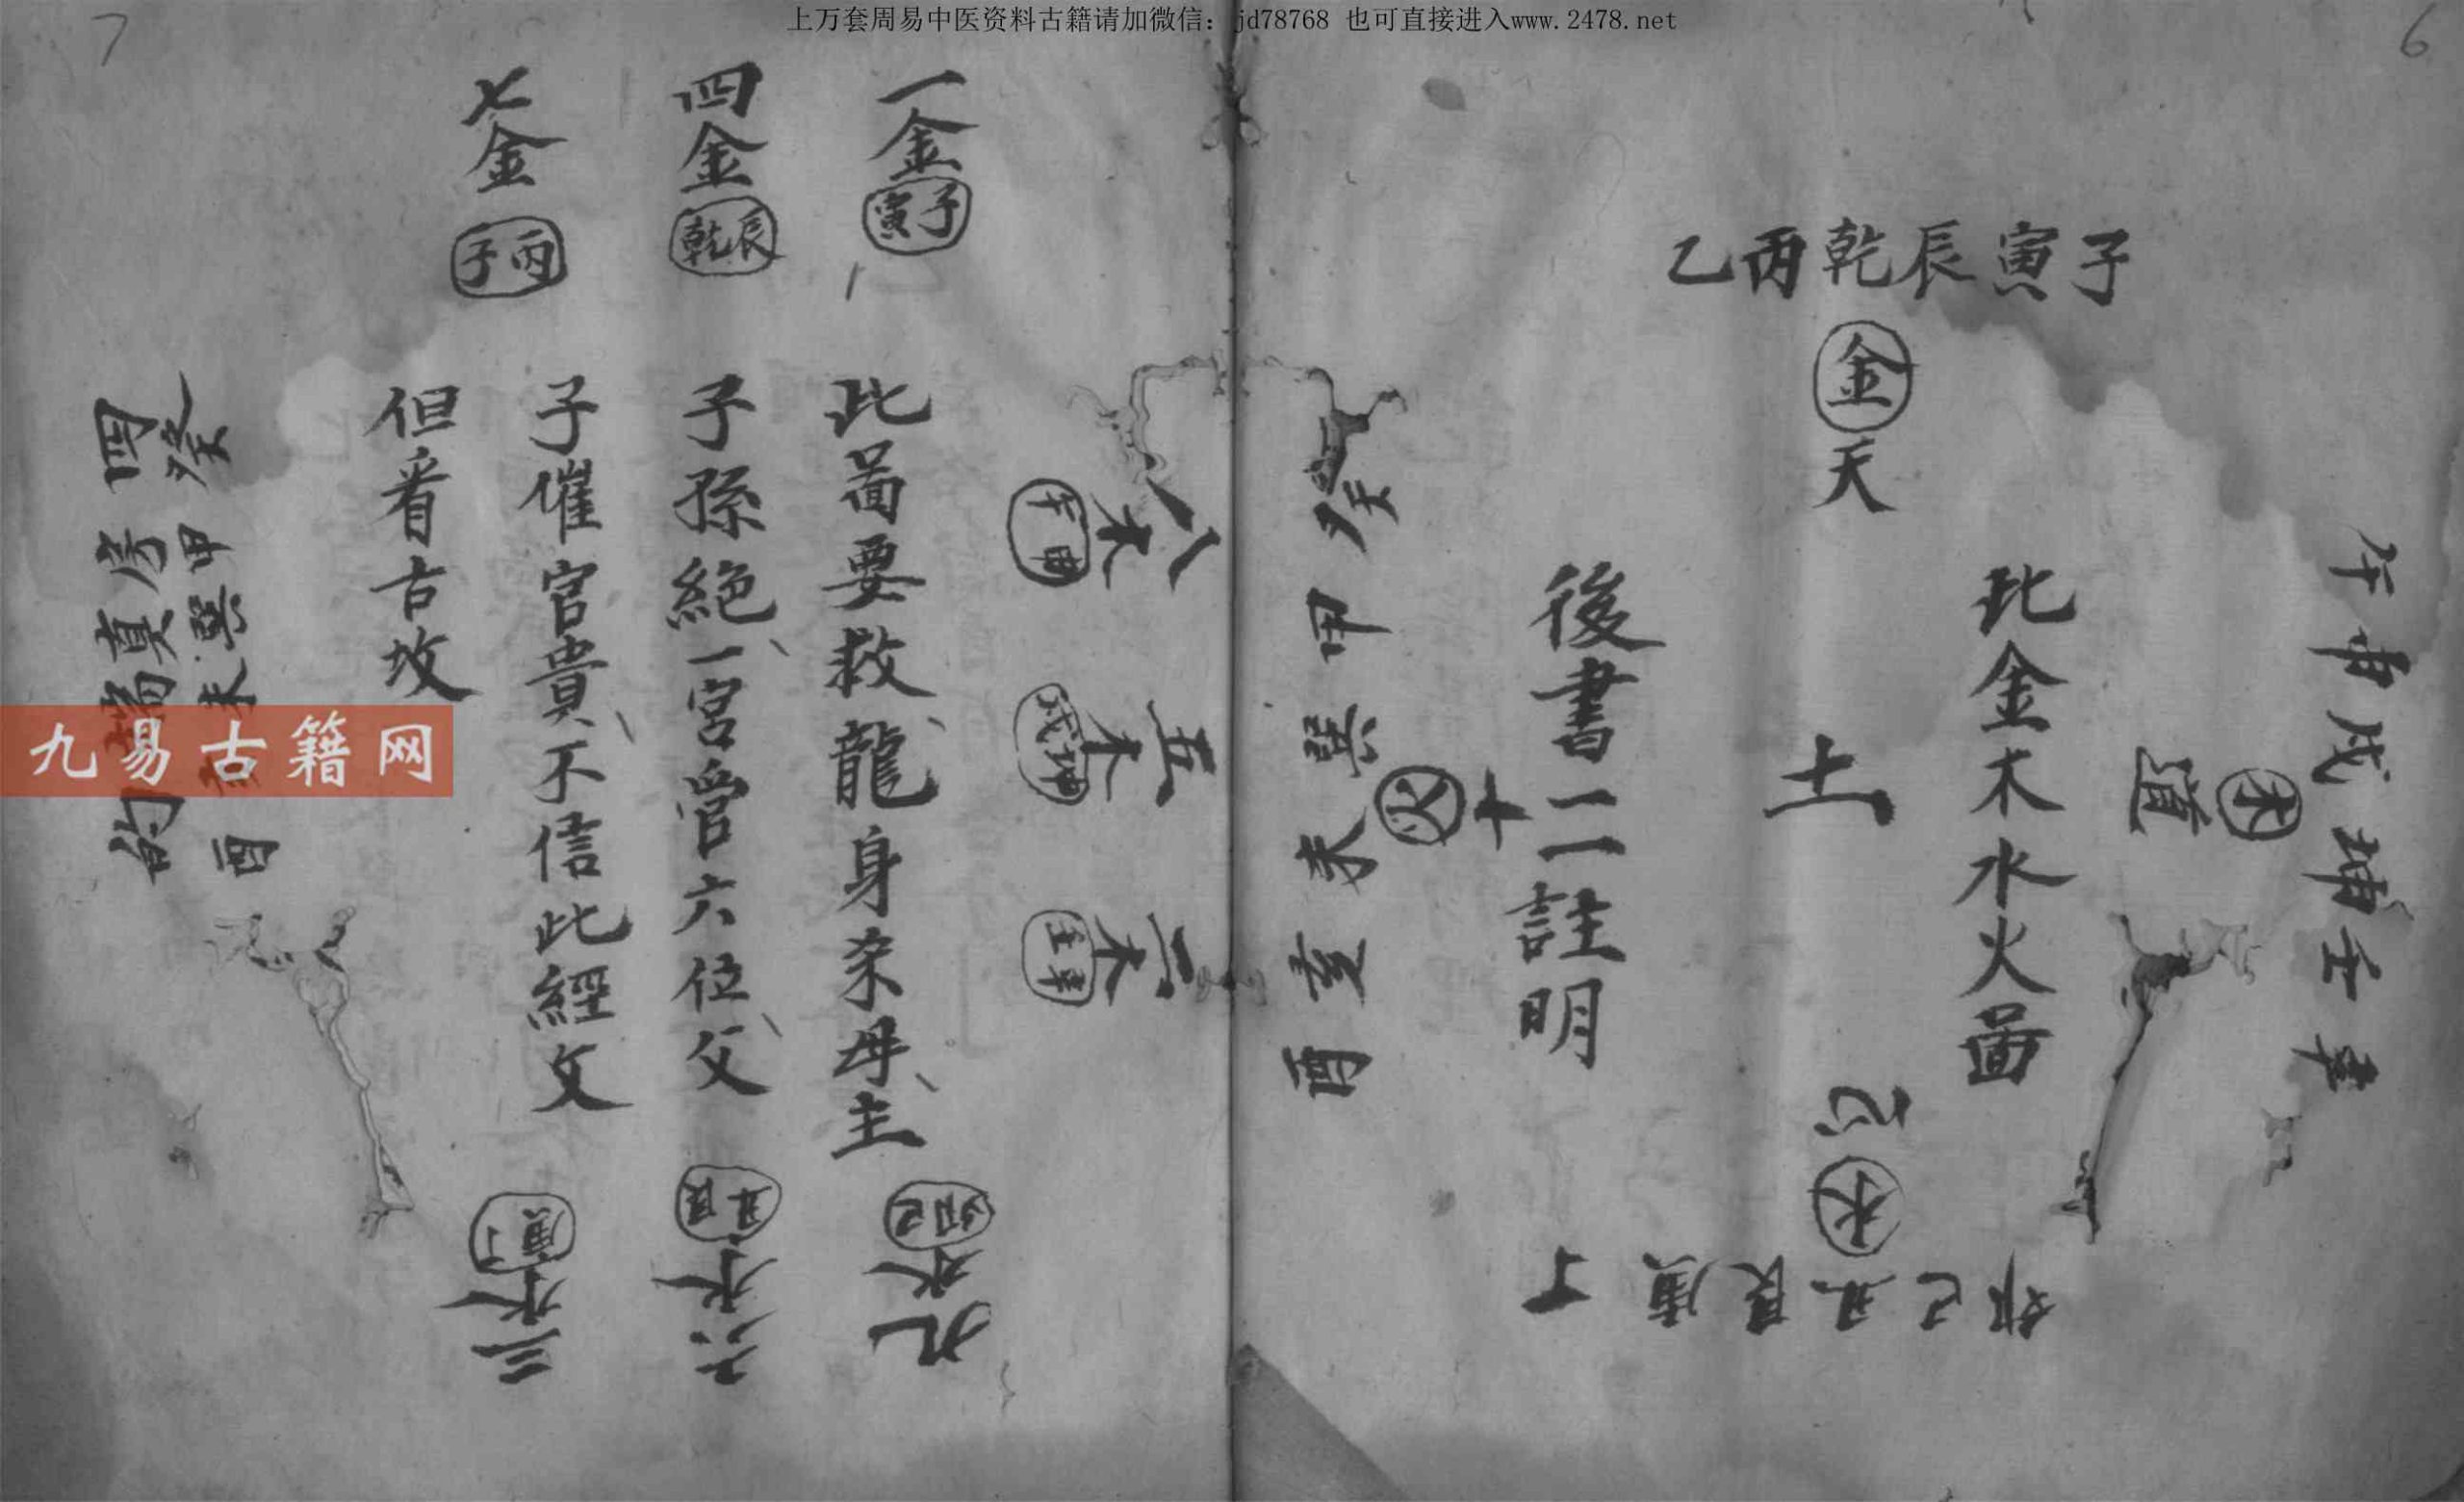 上万套周易中医资料古籍请加微信：jd78768 也可直接进入www.2478.net
6
子寅辰乾丙乙
金
天
午申戌坤壬辛
木
道
此金木水火畐
土
心
水
卯己丑艮庚丁
後書二註明
十
火
癸甲巽未亥酉
7
一金
子寅
四金
辰乾
七金
丙子
八木
午申
五木
戌坤
二木
壬辛
此畐要救龍身杀母主
子孫絶一宮管六位父
子催官貴不信此經文
但看古坟
九水
卯己
六水
丑艮
三水
庚丁
癸甲巽未 酉
四房真 的
九易古籍网